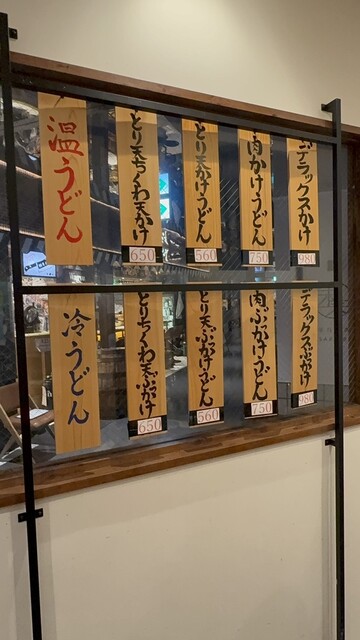 温うどん
とり天ちくわ天かけ
650
とり天かけうどん
560
肉かけうどん
750
デラックスかけ
980
冷うどん
とりちくわ天ぶかけ
650
とり天ぶかけうどん
560
肉ぶかけうどん
750
デラックスぶかけ
980